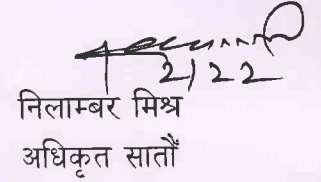 2/22
निलाम्बर मिश्र
अधिकृत सातौं